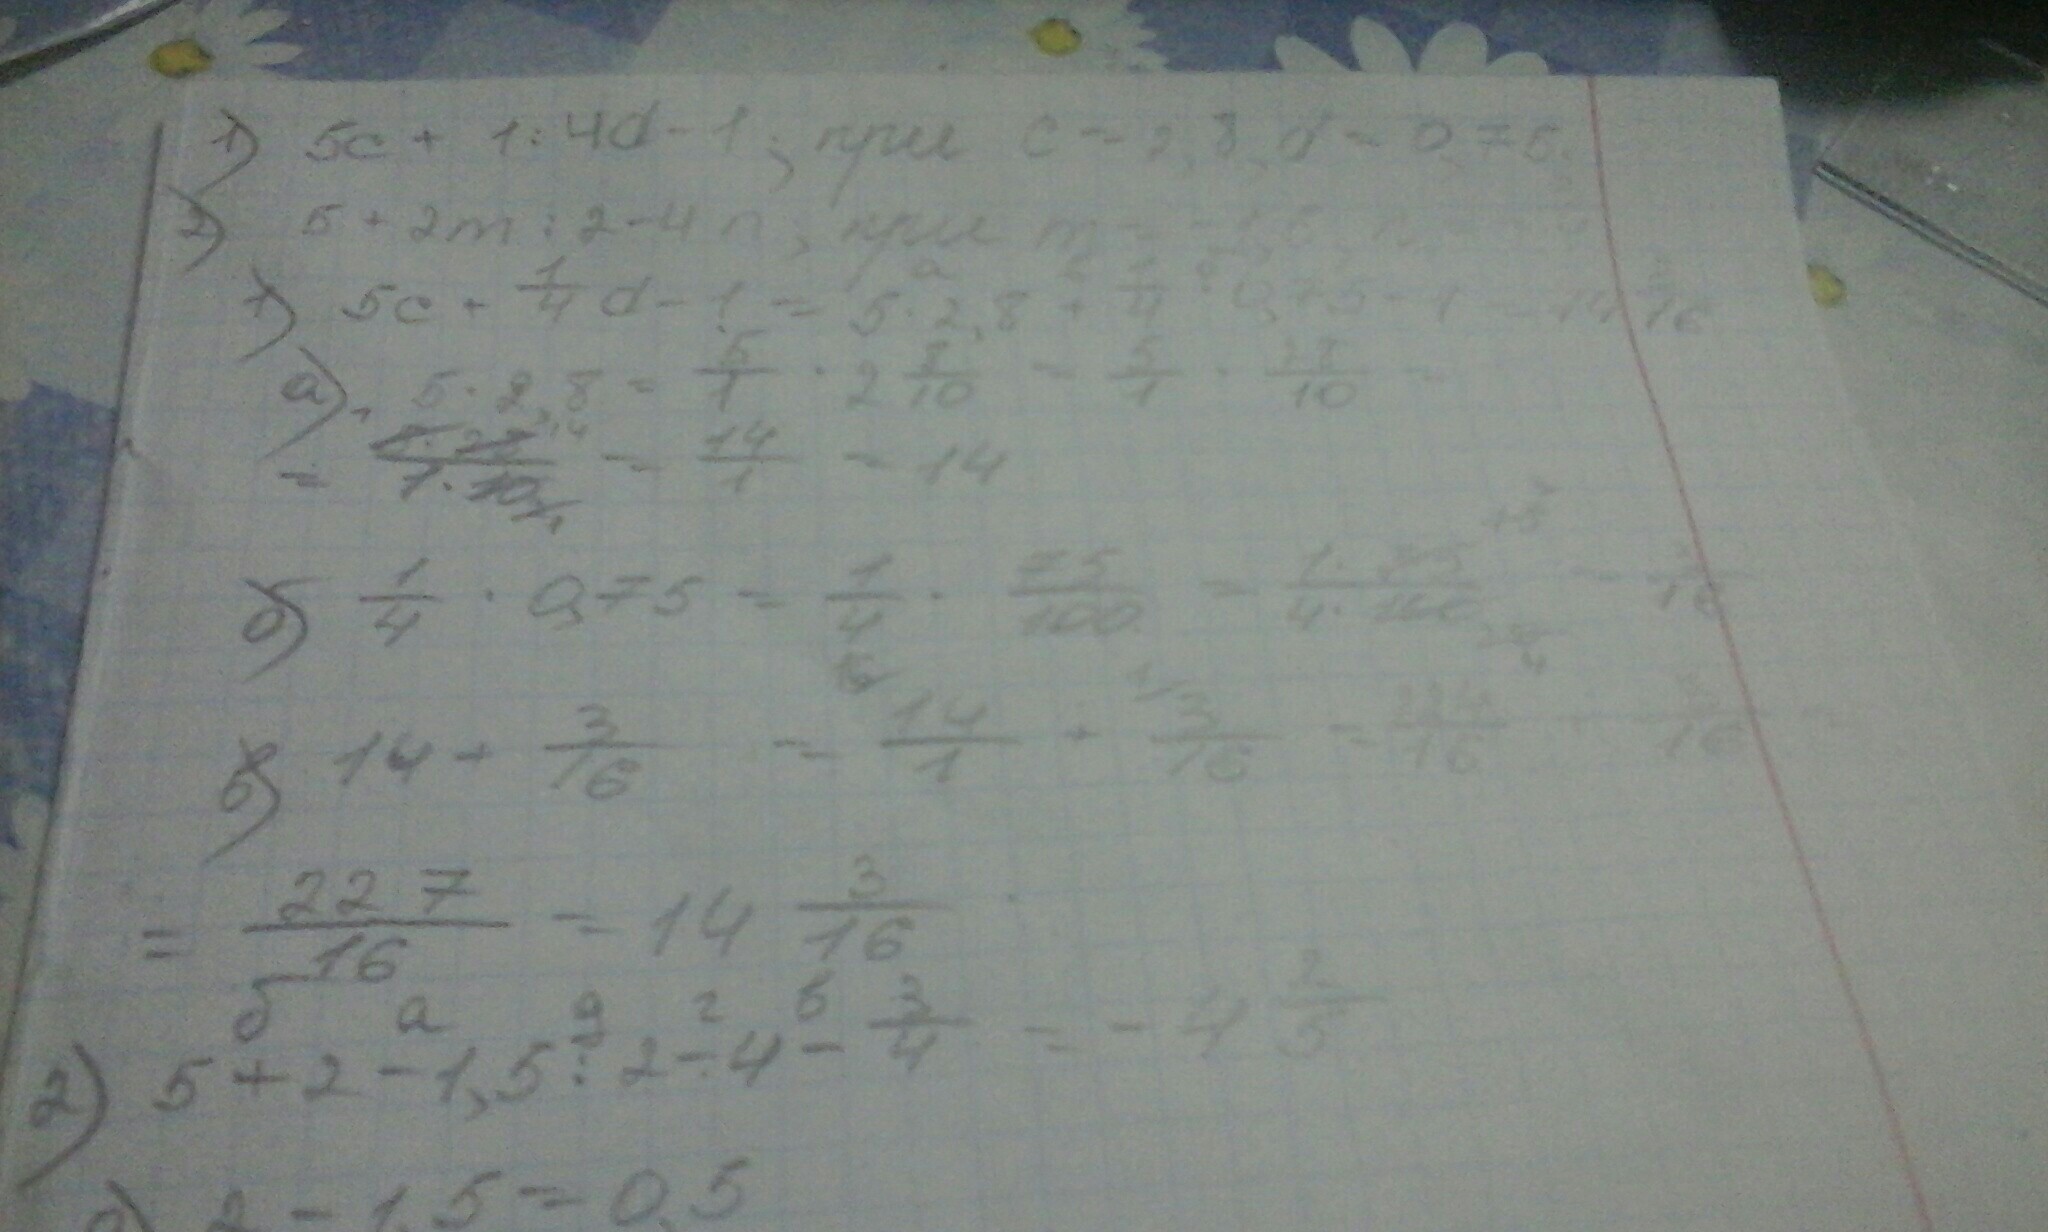 1) 5c + 1 : 4d - 1 ; при c = 2,8, d = 0,75.
2) 5 + 2m : 2 - 4n ; при m = -1,5, n
1) 5c + 1/4 d - 1 = 5 · 2,8 + 1/4 · 0,75 - 1 = 14 3/16
а) 5 · 2,8 = 5/1 · 2 8/10 = 5/1 · 28/10 =
= 5 · 28/1 · 10 = 14/1 = 14
б) 1/4 · 0,75 = 1/4 · 75/100 = 1 · 75/4 · 100 = 3/16
в) 14 + 3/16 = 14/1 + 3/16 = 224/16 + 3/16 =
= 227/16 = 14 3/16
б а д г в
2) 5 + 2 - 1,5 : 2 - 4 - 3/4 = - 4 2/5
а) 2 - 1,5 = 0,5